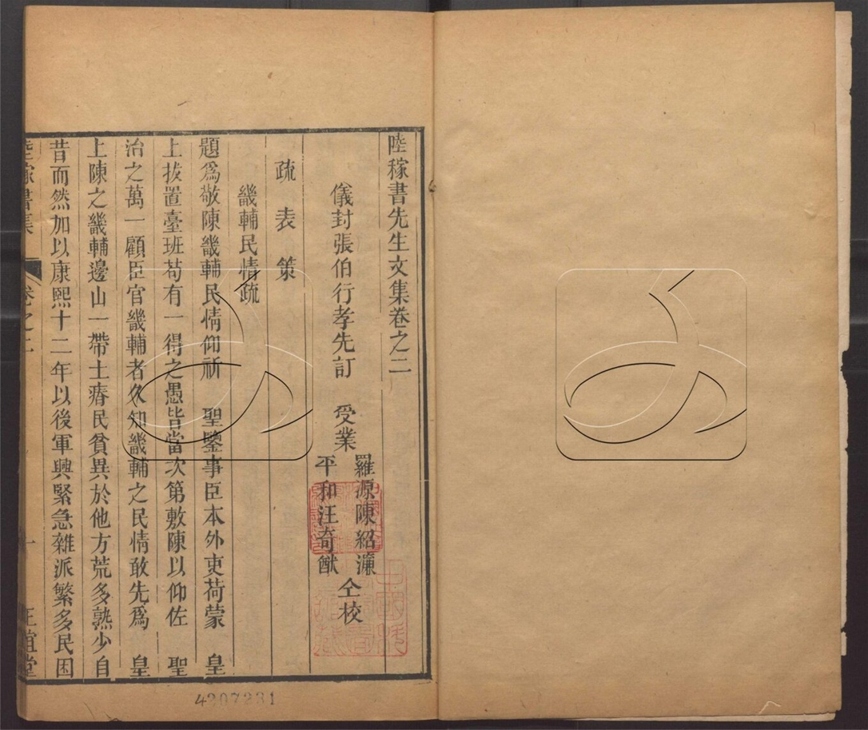 陸稼書先生文集卷之二
儀封張伯行孝先訂 受業 羅源陳紹濂 平和汪奇猷 仝校
疏 表 策
畿輔民情疏
題爲敬陳畿輔民情仰祈 聖鑒事臣本外吏荷蒙 皇
上拔置臺班苟有一得之愚皆當次第敷陳以仰佐 聖
治之萬一顧臣官畿輔者久知畿輔之民情敢先爲 皇
上陳之畿輔邊山一帶土瘠民貧異於他方荒多熟少自
昔而然加以康熙十二年以後軍興緊急雜派繁多民困
陸稼書集 卷之二 一 正誼堂
4207231